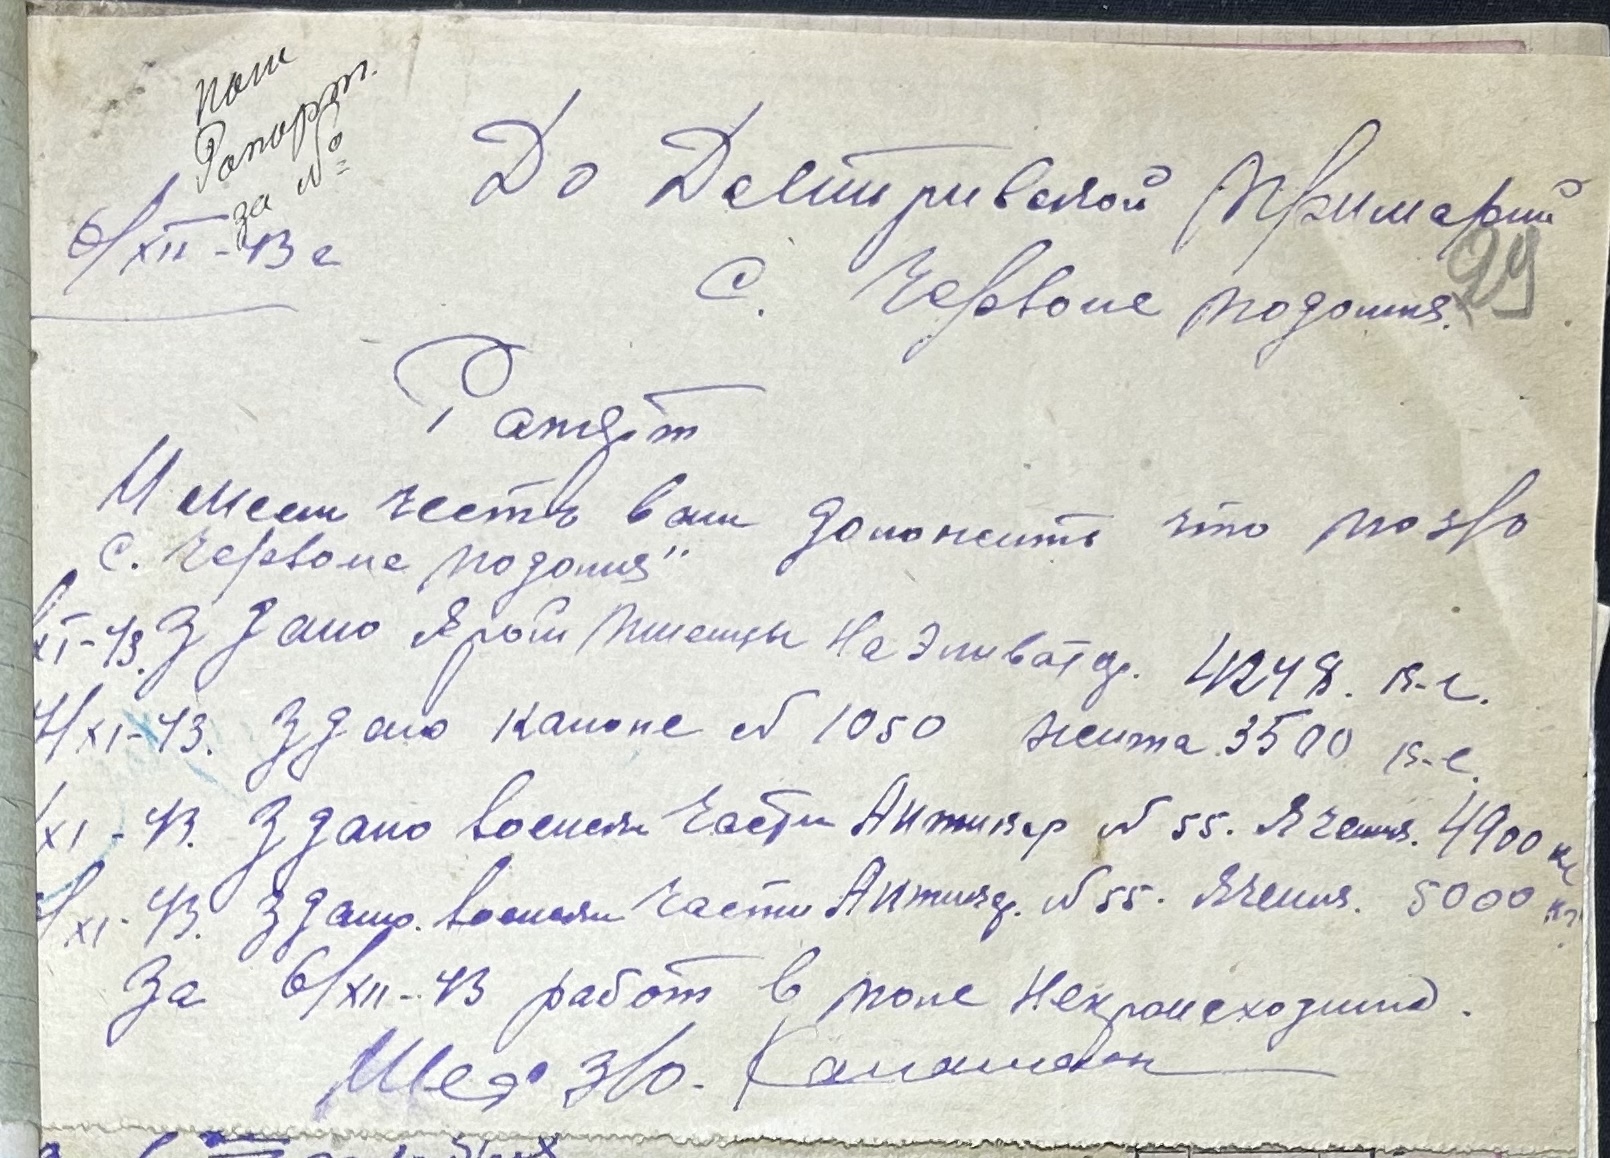 Рапорт.
за №
6/XII-43 г
До Дмитривской Примарии
29
С. Червоне подолля.
Рапорт
Имеем честь вам доложить что по з/о
С. Червоне подолля"
XI-43. Здано Ярой пшеницы На Элеватор. 4248. к-г.
4/XI-43. Здано колоне № 1050 жита 3500 к-г.
/XI-43. Здано воєноя части № 55. Ячменя. 4900 кг
/XI-43. Здано. воєноя части № 55. Ячменя. 5000 кг
За 6/XII-43 работ в поле Непроисходило.
Шеф з/о.